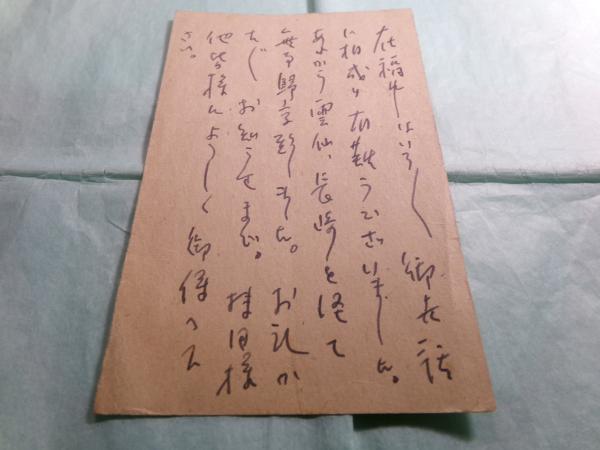 在福中はいろ〱御世話
に相成り有難うございました。
あれから雲仙、長崎を経て
無事歸京致しました。お礼か
たがたお知らせまで。 様
他皆様によろしく御傳へ下
さい。